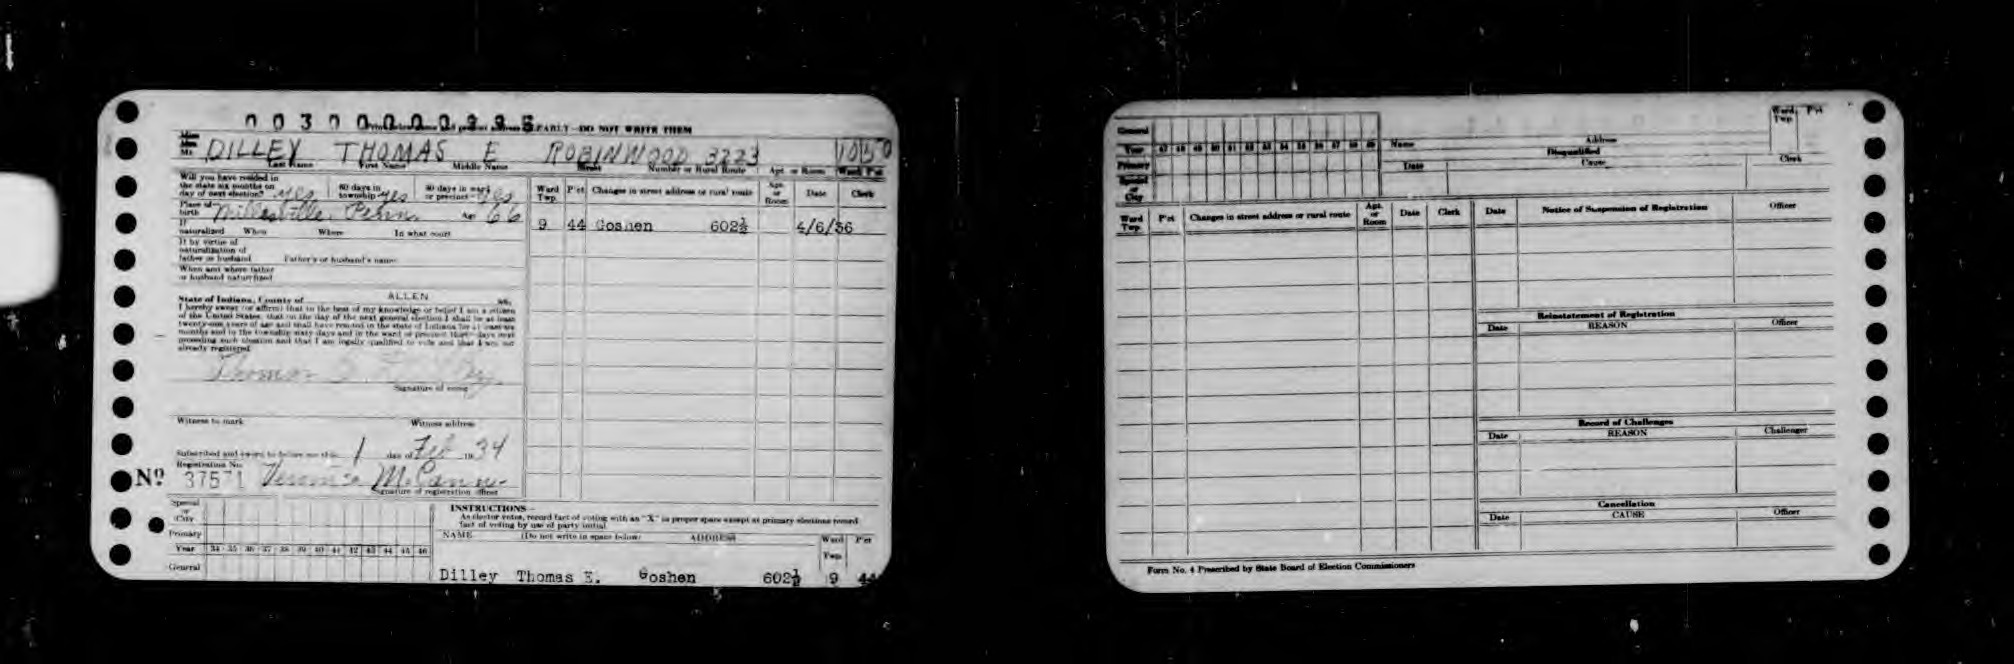 0 0 3 0 0 0 0 0 3 3 5
EARLY—DO NOT WRITE THEM
Miss
Mrs.
Mr. DILLEY THOMAS E ROBINWOOD 3223
Last Name First Name Middle Name Street Number or Rural Route Apt. or Room Ward Pct
Will you have resided in
the state six months on
day of next election? yes 60 days in
township yes 30 days in ward
or precinct yes
Place of
birth Millersville Penn. Age 66
If
naturalized When Where In what court
If by virtue of
naturalization of
father or husband Father's or husband's name
When and where father
or husband naturalized
Ward
Twp. P'ct Changes in street address or rural route Apt.
or
Room Date Clerk
9 44 Goshen 602½ 4/6/36
State of Indiana, County of ALLEN ss.
I hereby swear (or affirm) that to the best of my knowledge or belief I am a citizen
of the United States, that on the day of the next general election I shall be at least
twenty-one years of age and shall have resided in the state of Indiana for at least six
months and in the township sixty days and in the ward or precinct thirty days next
preceding such election and that I am legally qualified to vote and that I am not
already registered.
Thomas E. Dilley
Signature of voter
Witness to mark Witness address
Subscribed and sworn to before me this 1 day of Feb 1934
Registration No.
Nº 37571 Veronica McCann
Signature of registration officer
Special
or
City
Primary
Year 34 35 36 37 38 39 40 41 42 43 44 45 46
General
INSTRUCTIONS—
As elector votes, record fact of voting with an "X" in proper space except at primary elections record
fact of voting by use of party initial.
NAME (Do not write in space below) ADDRESS Ward
Twp. P'ct
Dilley Thomas E. Goshen 602½ 9 44
General
Year 47 48 49 50 51 52 53 54 55 56 57 58 59
Primary
Special
or
City
Name Address Ward
Twp. P'ct
Disqualified
Date Cause Clerk
Ward
Twp. P'ct Changes in street address or rural route Apt.
or
Room Date Clerk
Date Notice of Suspension of Registration Officer
Reinstatement of Registration
Date REASON Officer
Record of Challenges
Date REASON Challenger
Cancellation
Date CAUSE Officer
Form No. 4 Prescribed by State Board of Election Commissioners